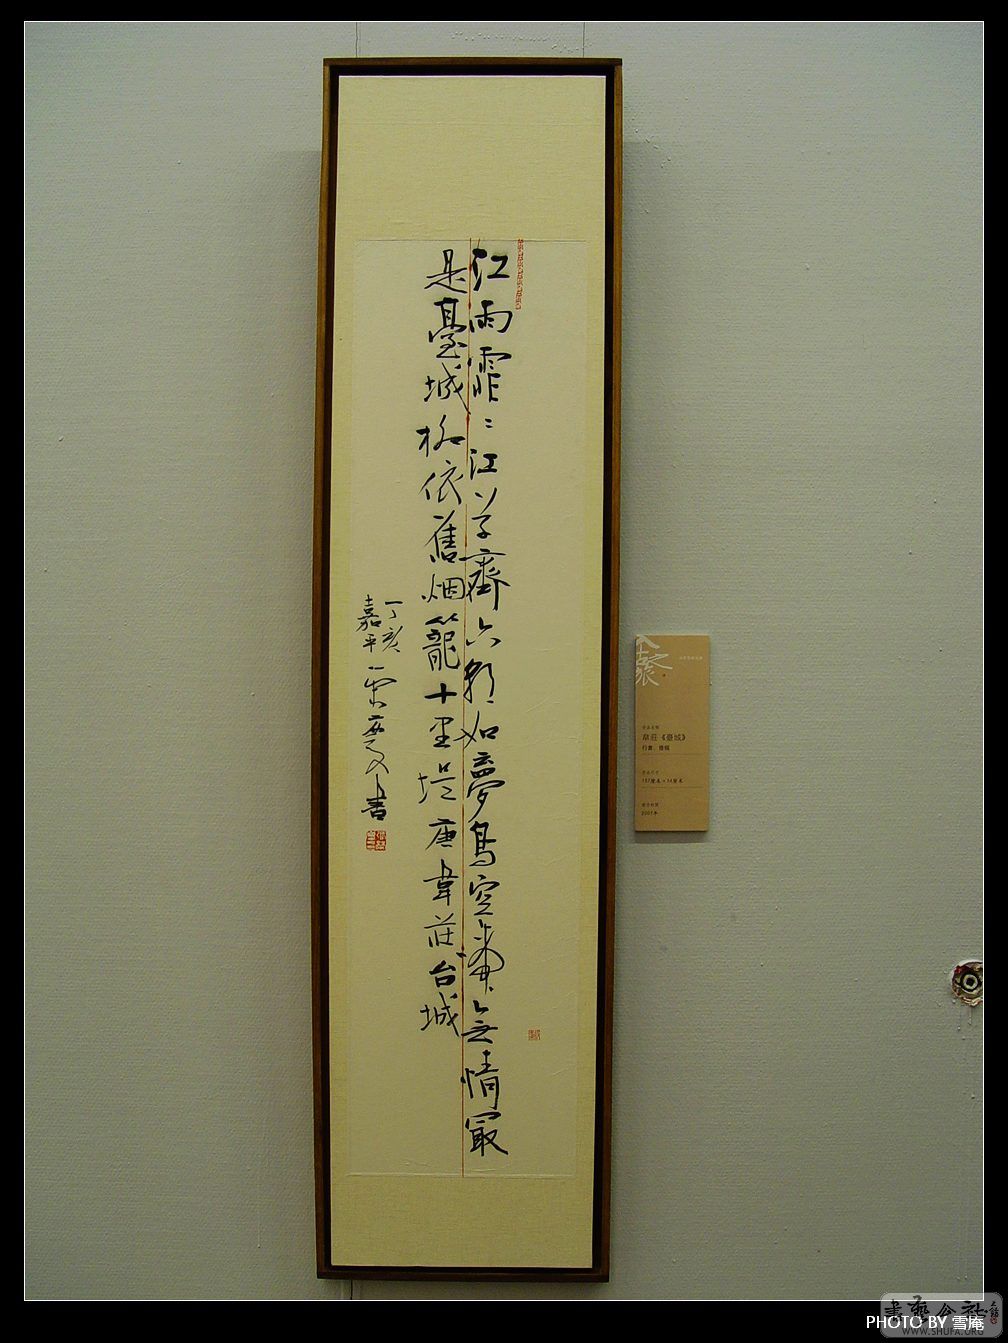 江雨霏〻江草齊六朝如夢鳥空啼無情最
是臺城柳依舊烟籠十里堤唐韋莊台城
丁亥
嘉平
書
韋莊《臺城》
行書 條幅
2007年
書藝公社
WWW.SHUFA.ORG
PHOTO BY 雪庵